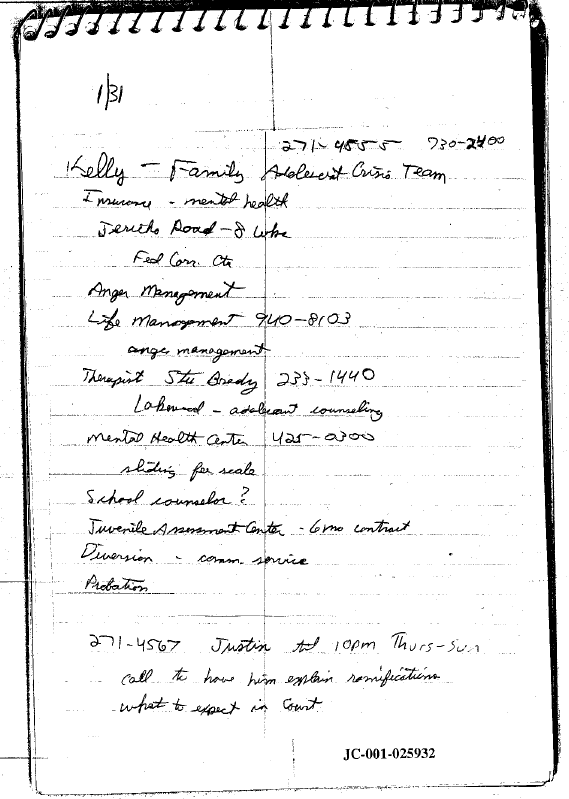 1/31
271-4555 730-2400
Kelly - Family Adolescent Crisis Team
Insurance - mental health
Jericho Road - 8 wks
Fed Corr. Ctr
Anger Management
Life Management 940-8103
anger management
Therapist Stu Brady 233-1440
Lakewood - adolescent counseling
Mental Health Center 425-0300
sliding fee scale
School counselor?
Juvenile Assessment Center - 6 mo contract
Diversion - comm. service
Probation
271-4567 Justin til 10pm Thurs-Sun
call to have him explain ramifications
what to expect in Court
JC-001-025932